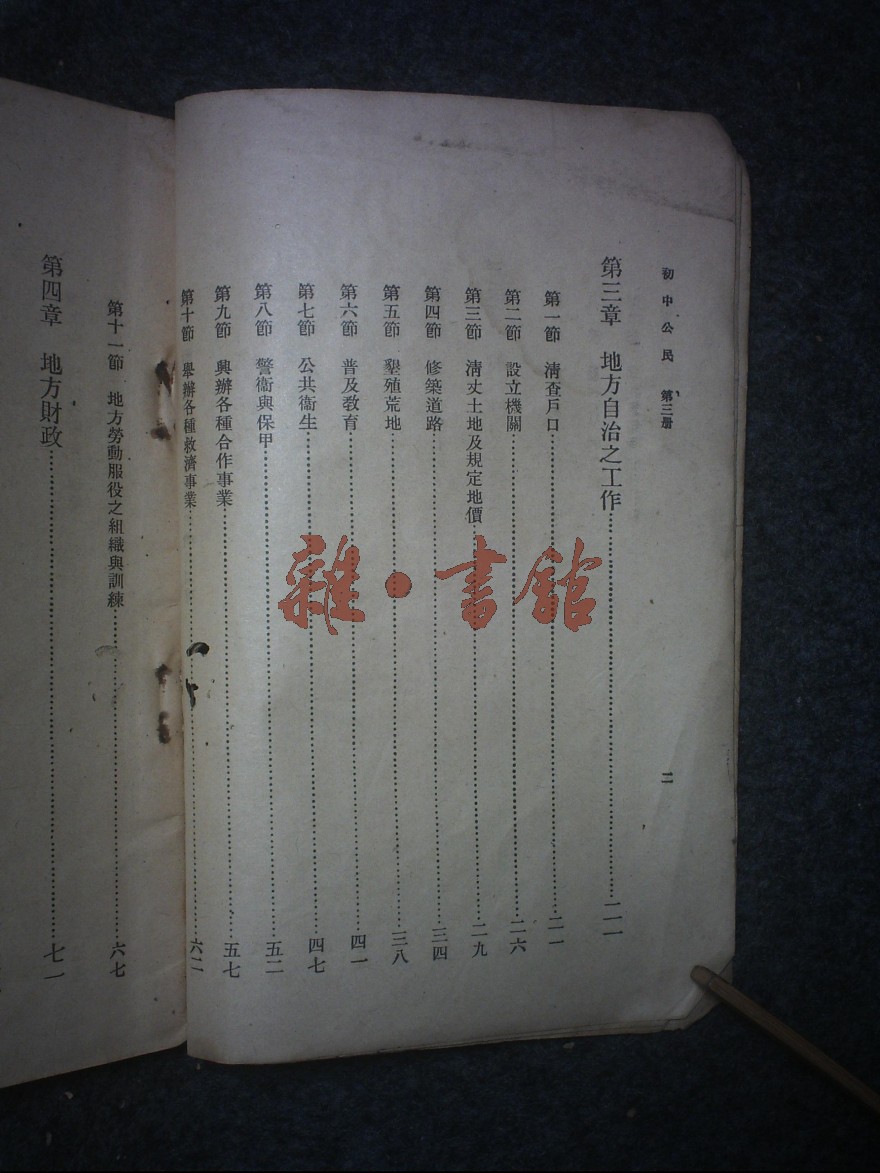 初中公民 第三册 二
第三章 地方自治之工作 二一
第一節 清查戶口 二一
第二節 設立機關 二六
第三節 清丈土地及規定地價 二九
第四節 修築道路 三四
第五節 墾殖荒地 三八
第六節 普及教育 四一
第七節 公共衞生 四七
第八節 警衞與保甲 五二
第九節 興辦各種合作事業 五七
第十節 舉辦各種救濟事業 六二
第十一節 地方勞動服役之組織與訓練 六七
第四章 地方財政 七一
雜·書館